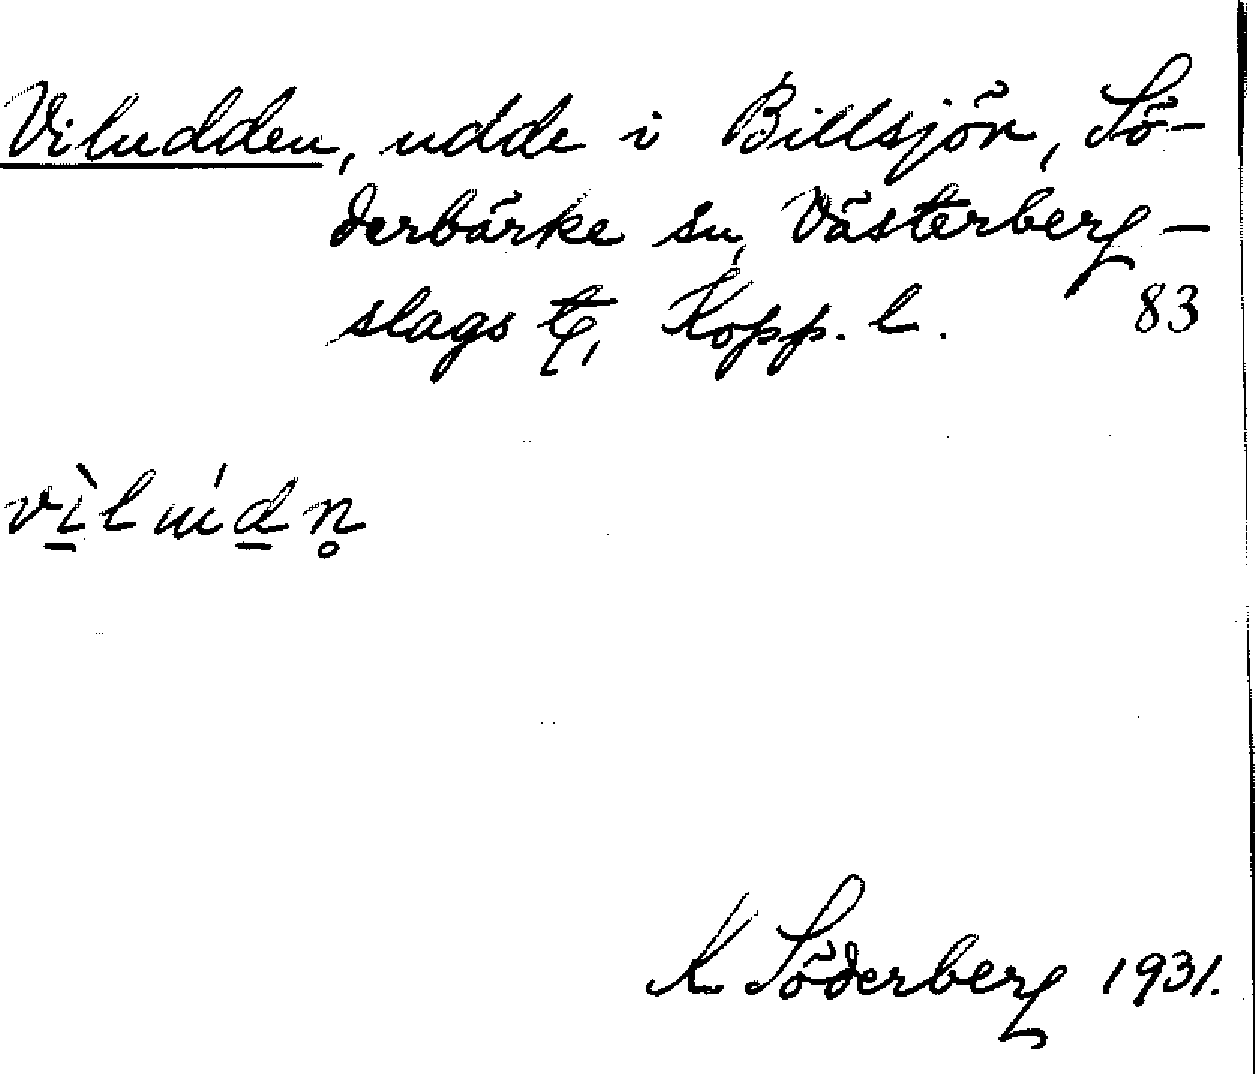 Viludden, udde i Billsjön, Sö-
derbärke sn, Västerberg-
slags tg, Kopp. l. 83
vìlúdn̥
K Söderberg 1931.